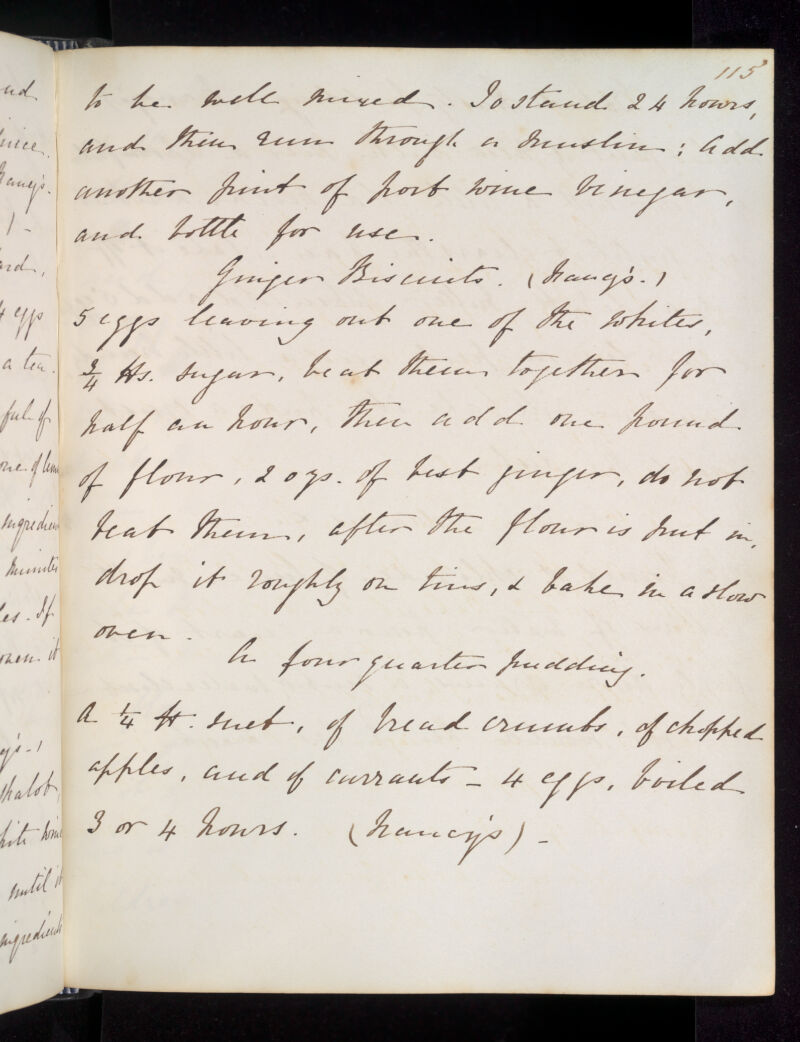 115
to be well mixed. To stand 24 hours,
and then run through a muslin; add
another pint of port wine vinegar,
and bottle for use.
Ginger Biscuits. (Nancy's.)
5 eggs leaving out one of the whites,
3/4 lbs. sugar, beat them together for
half an hour, then add one pound
of flour, 2 ozs. of best ginger, do not
beat them, after the flour is put in,
drop it roughly on tins, & bake in a slow
oven.
A four quarter pudding.
A 1/4 lb. suet, of bread crumbs, of chopped
apples, and of currants - 4 eggs, boiled
3 or 4 hours. (Nancy's) -
nd
juice.
Nancy's.
) -
4 eggs
a tea
ful of
one of
ingredien
minutes
es. If
oven it
y's.)
shalot,
until it
ingredients